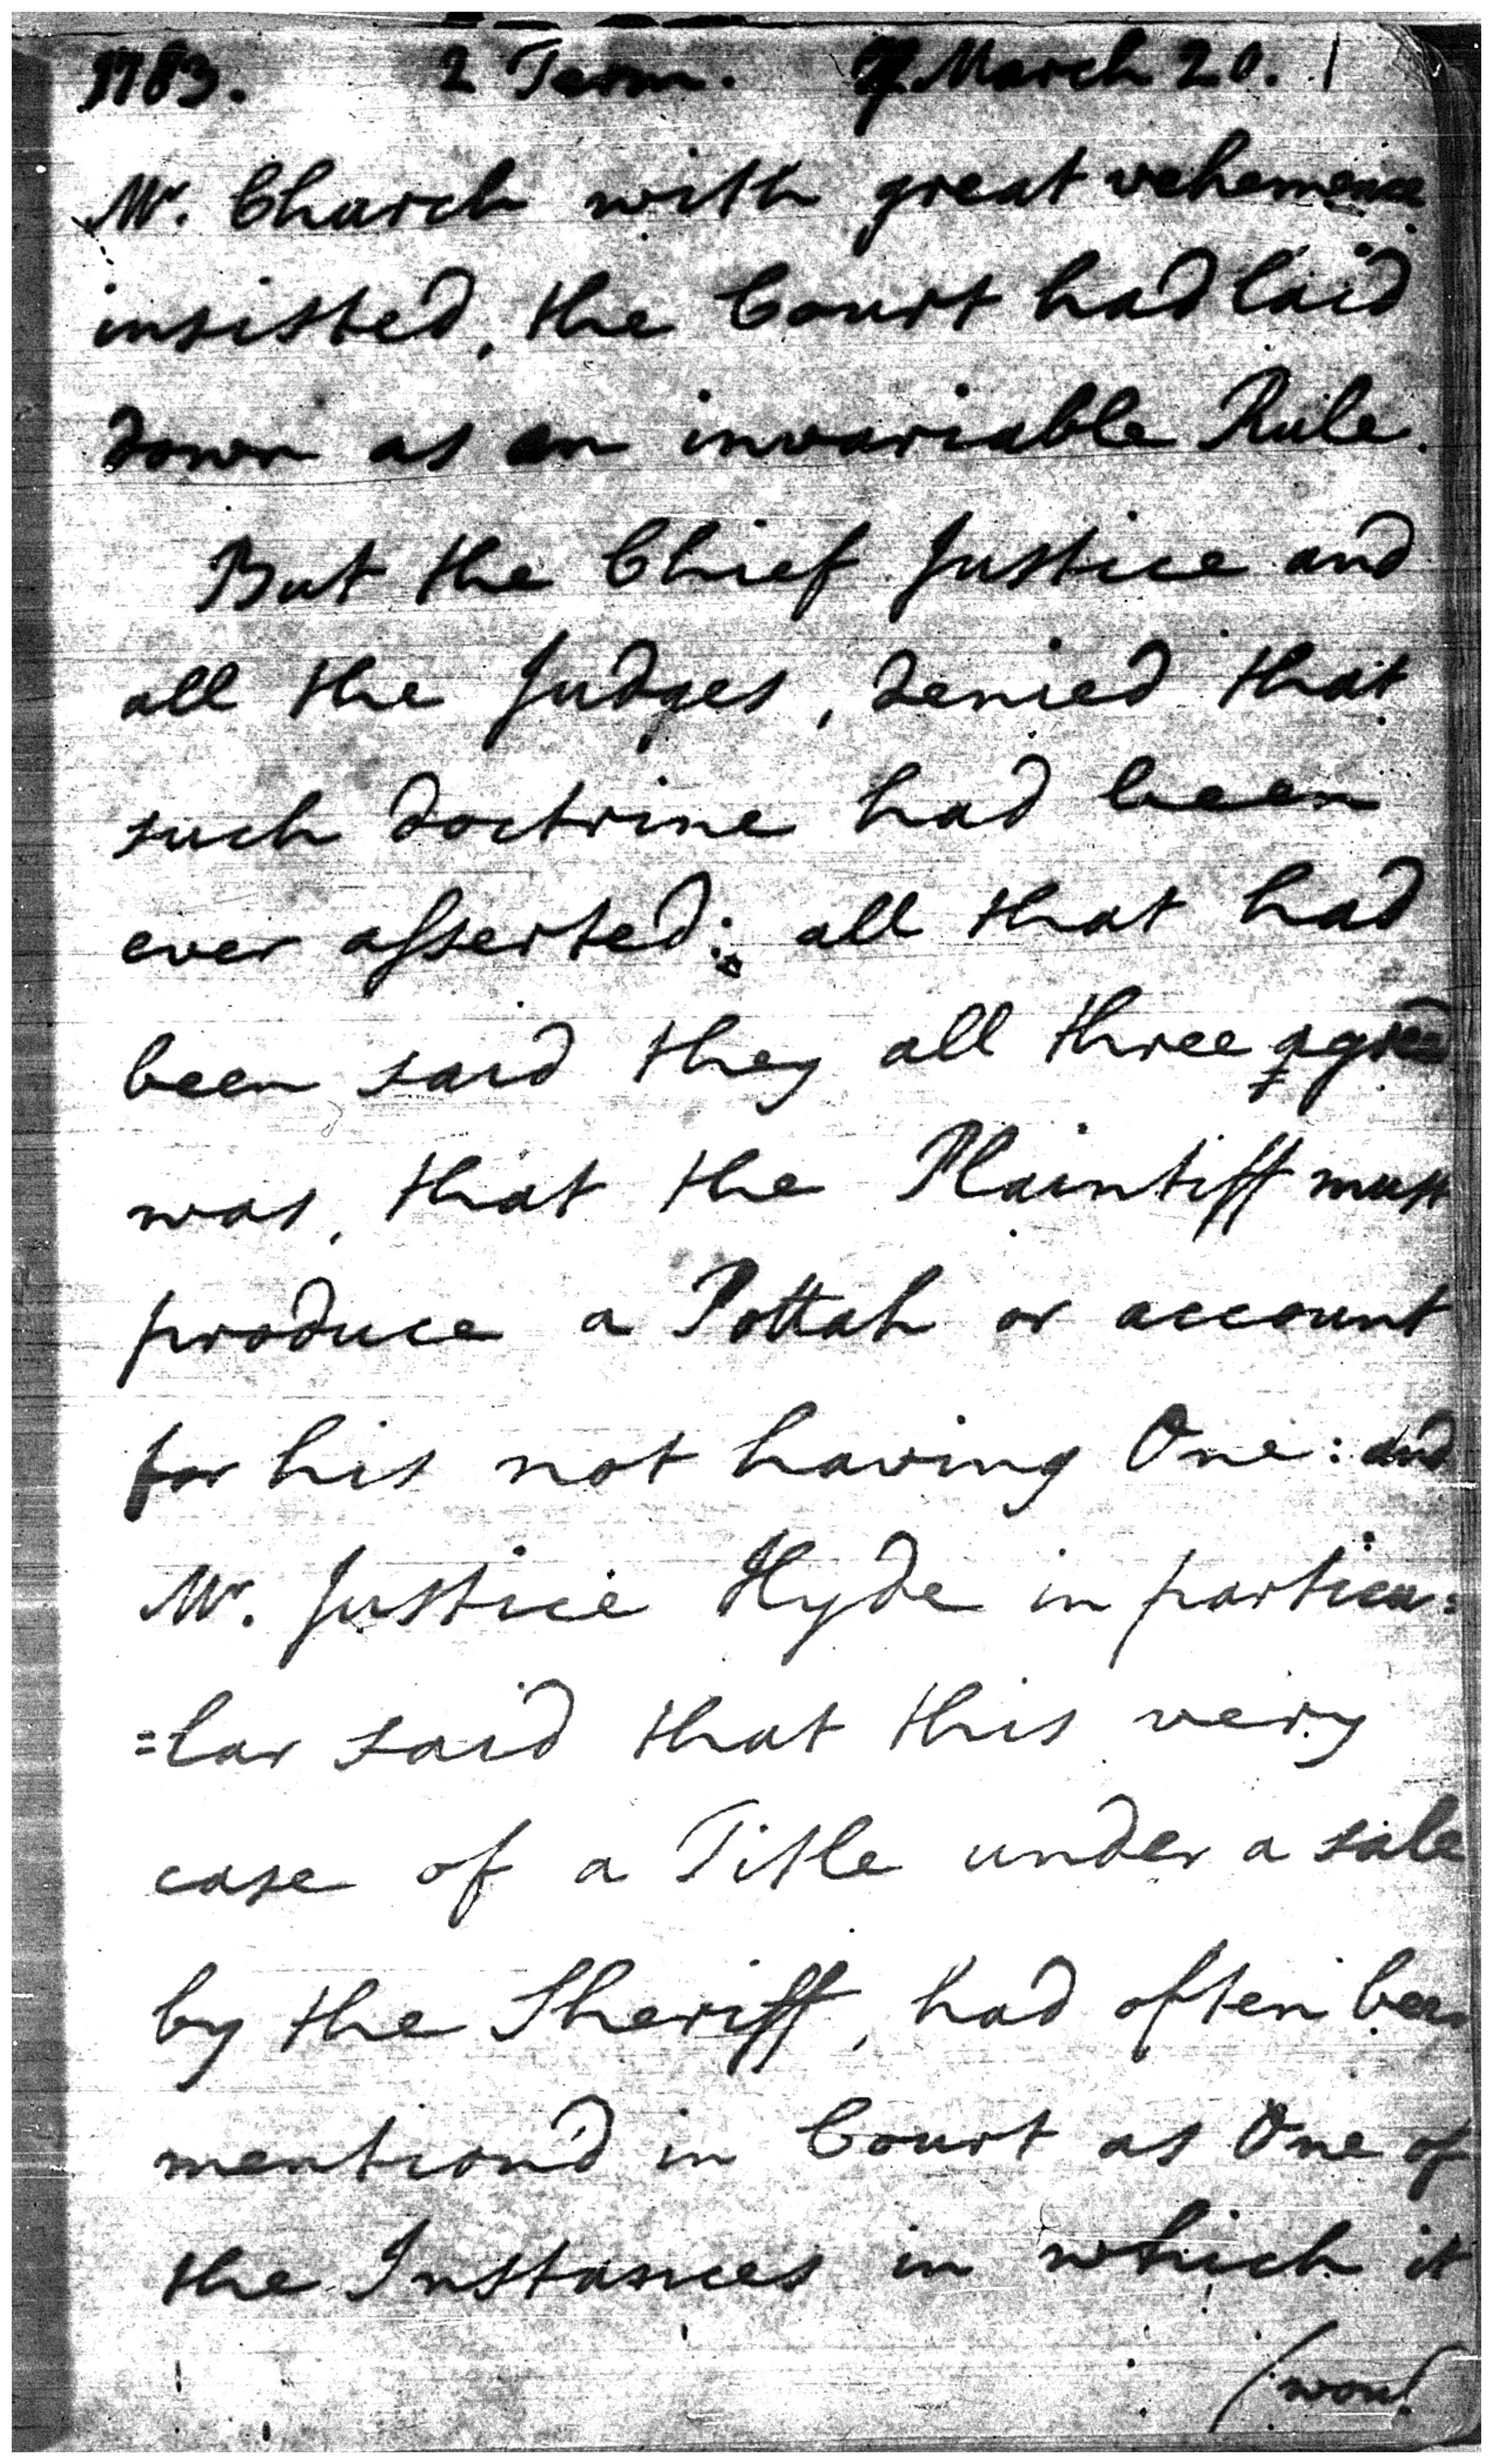 1783. 2 Term. March 20.
Mr. Church with great vehemence
insisted, the Court had laid
down as an invariable Rule.
But the Chief Justice and
all the Judges, denied that
such doctrine had been
ever asserted: all that had
been said they all three agreed
was, that the Plaintiff must
produce a Pottah or account
for his not having One: and
Mr. Justice Hyde in particu=
=lar said that this very
case of a Title under a sale
by the Sheriff, had often been
mention'd in Court as One of
the Instances in which it